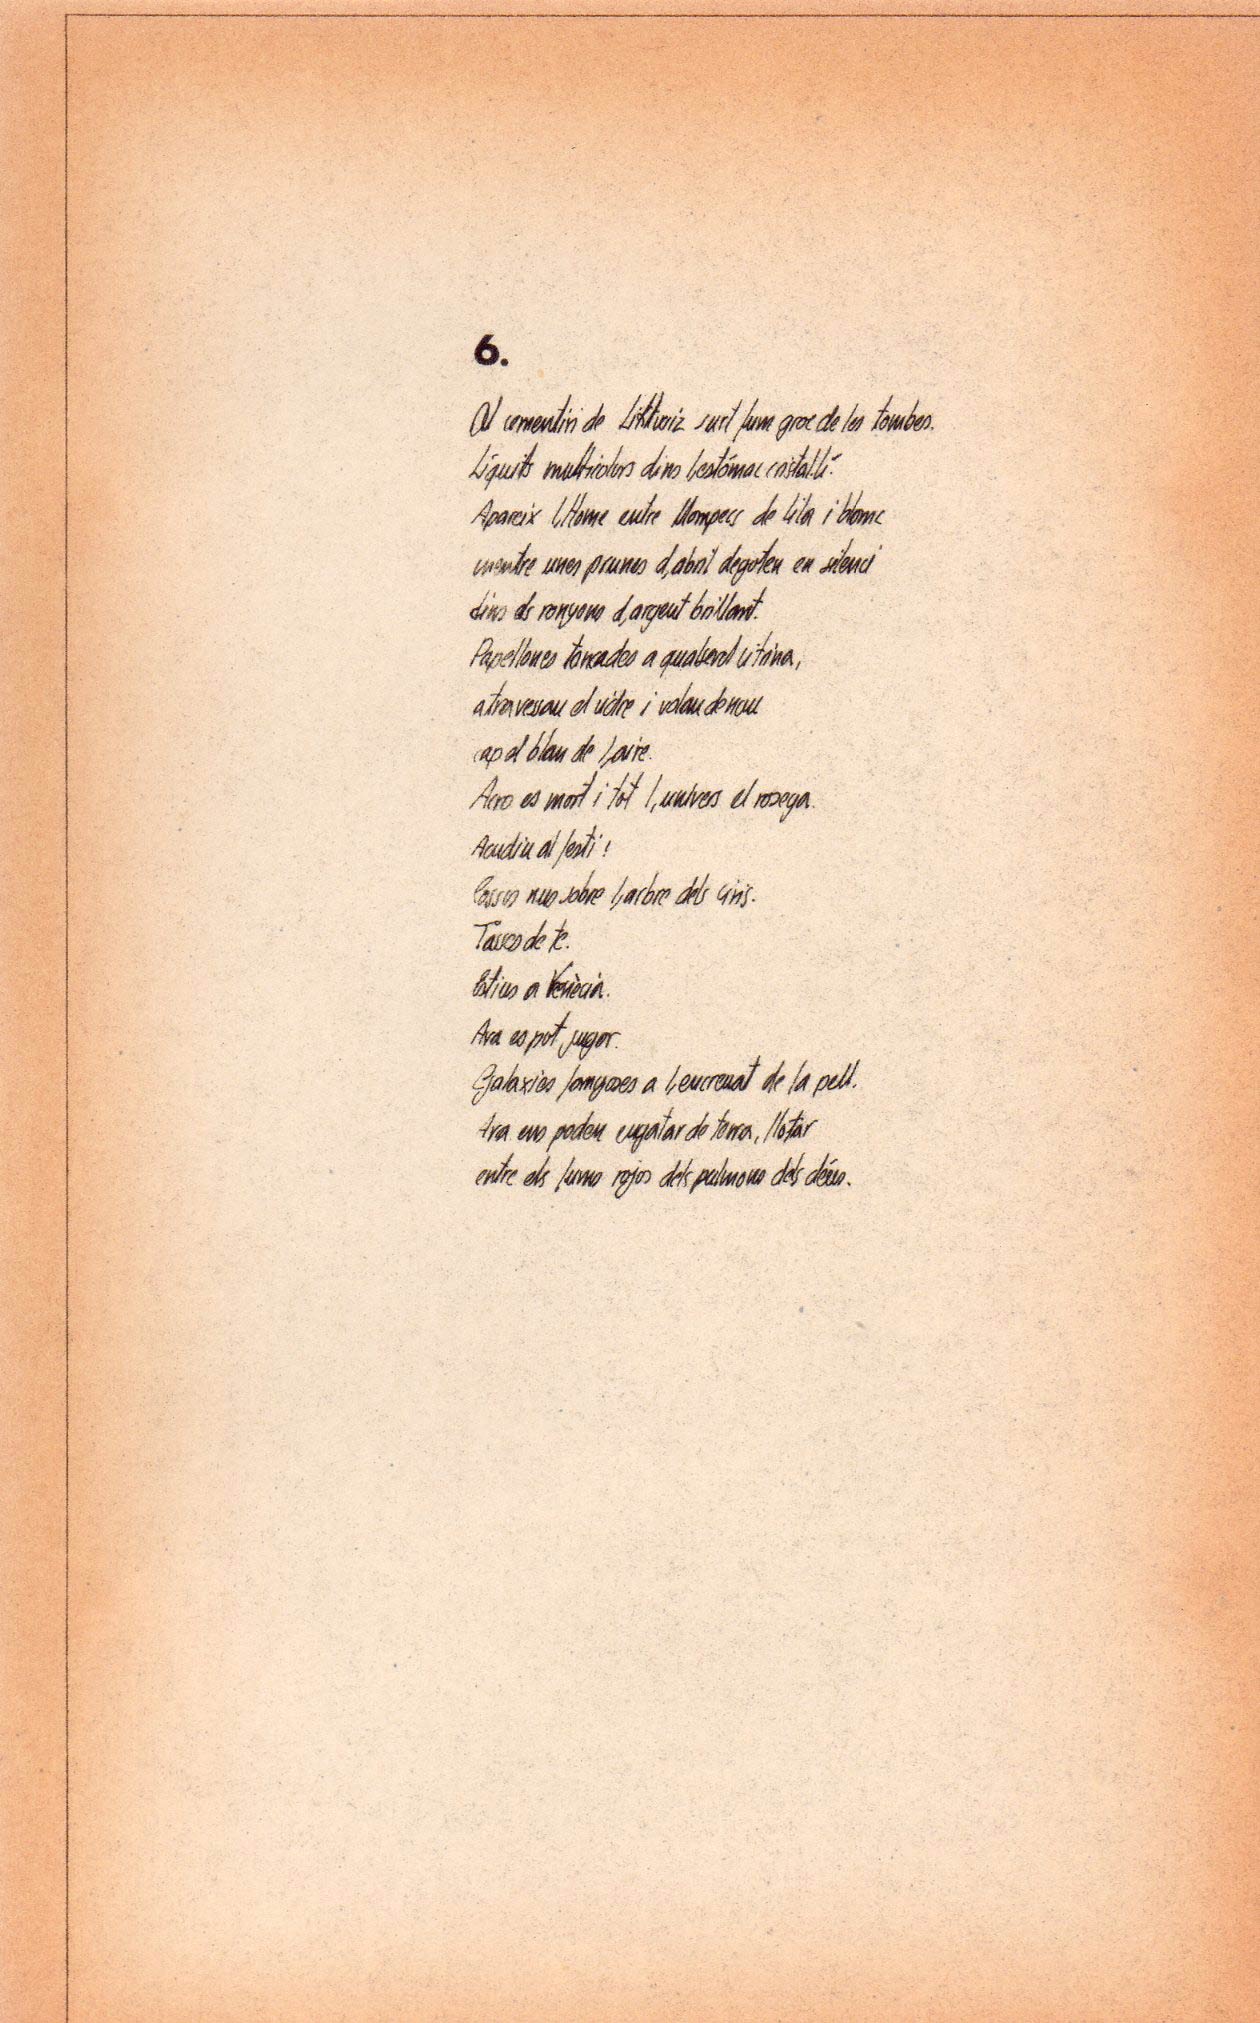 6.
Al cementiri de surt fum groc de les tombes.
Líquits multicolors dins l'estómac cristal·lí.
Apareix l'Home entre llampecs de lila i blanc
mentre unes prunes d'abril degoten en silenci
dins els ronyons d'argent brillant.
Papellones tancades a qualsevol vitrina,
atravessau el vidre i volau de nou
cap al blau de l'aire.
es mort i tot l'univers el rosega.
Acudiu al festí!
Cossos nus sobre l'arbre dels ciris.
Tasses de te.
Estius a Venècia.
Ara es pot jugar.
Galaxies fangoses a l'encreuat de la pell.
Ara ens poden engatar de terra, flotar
entre els fums rojos dels pulmons dels déus.